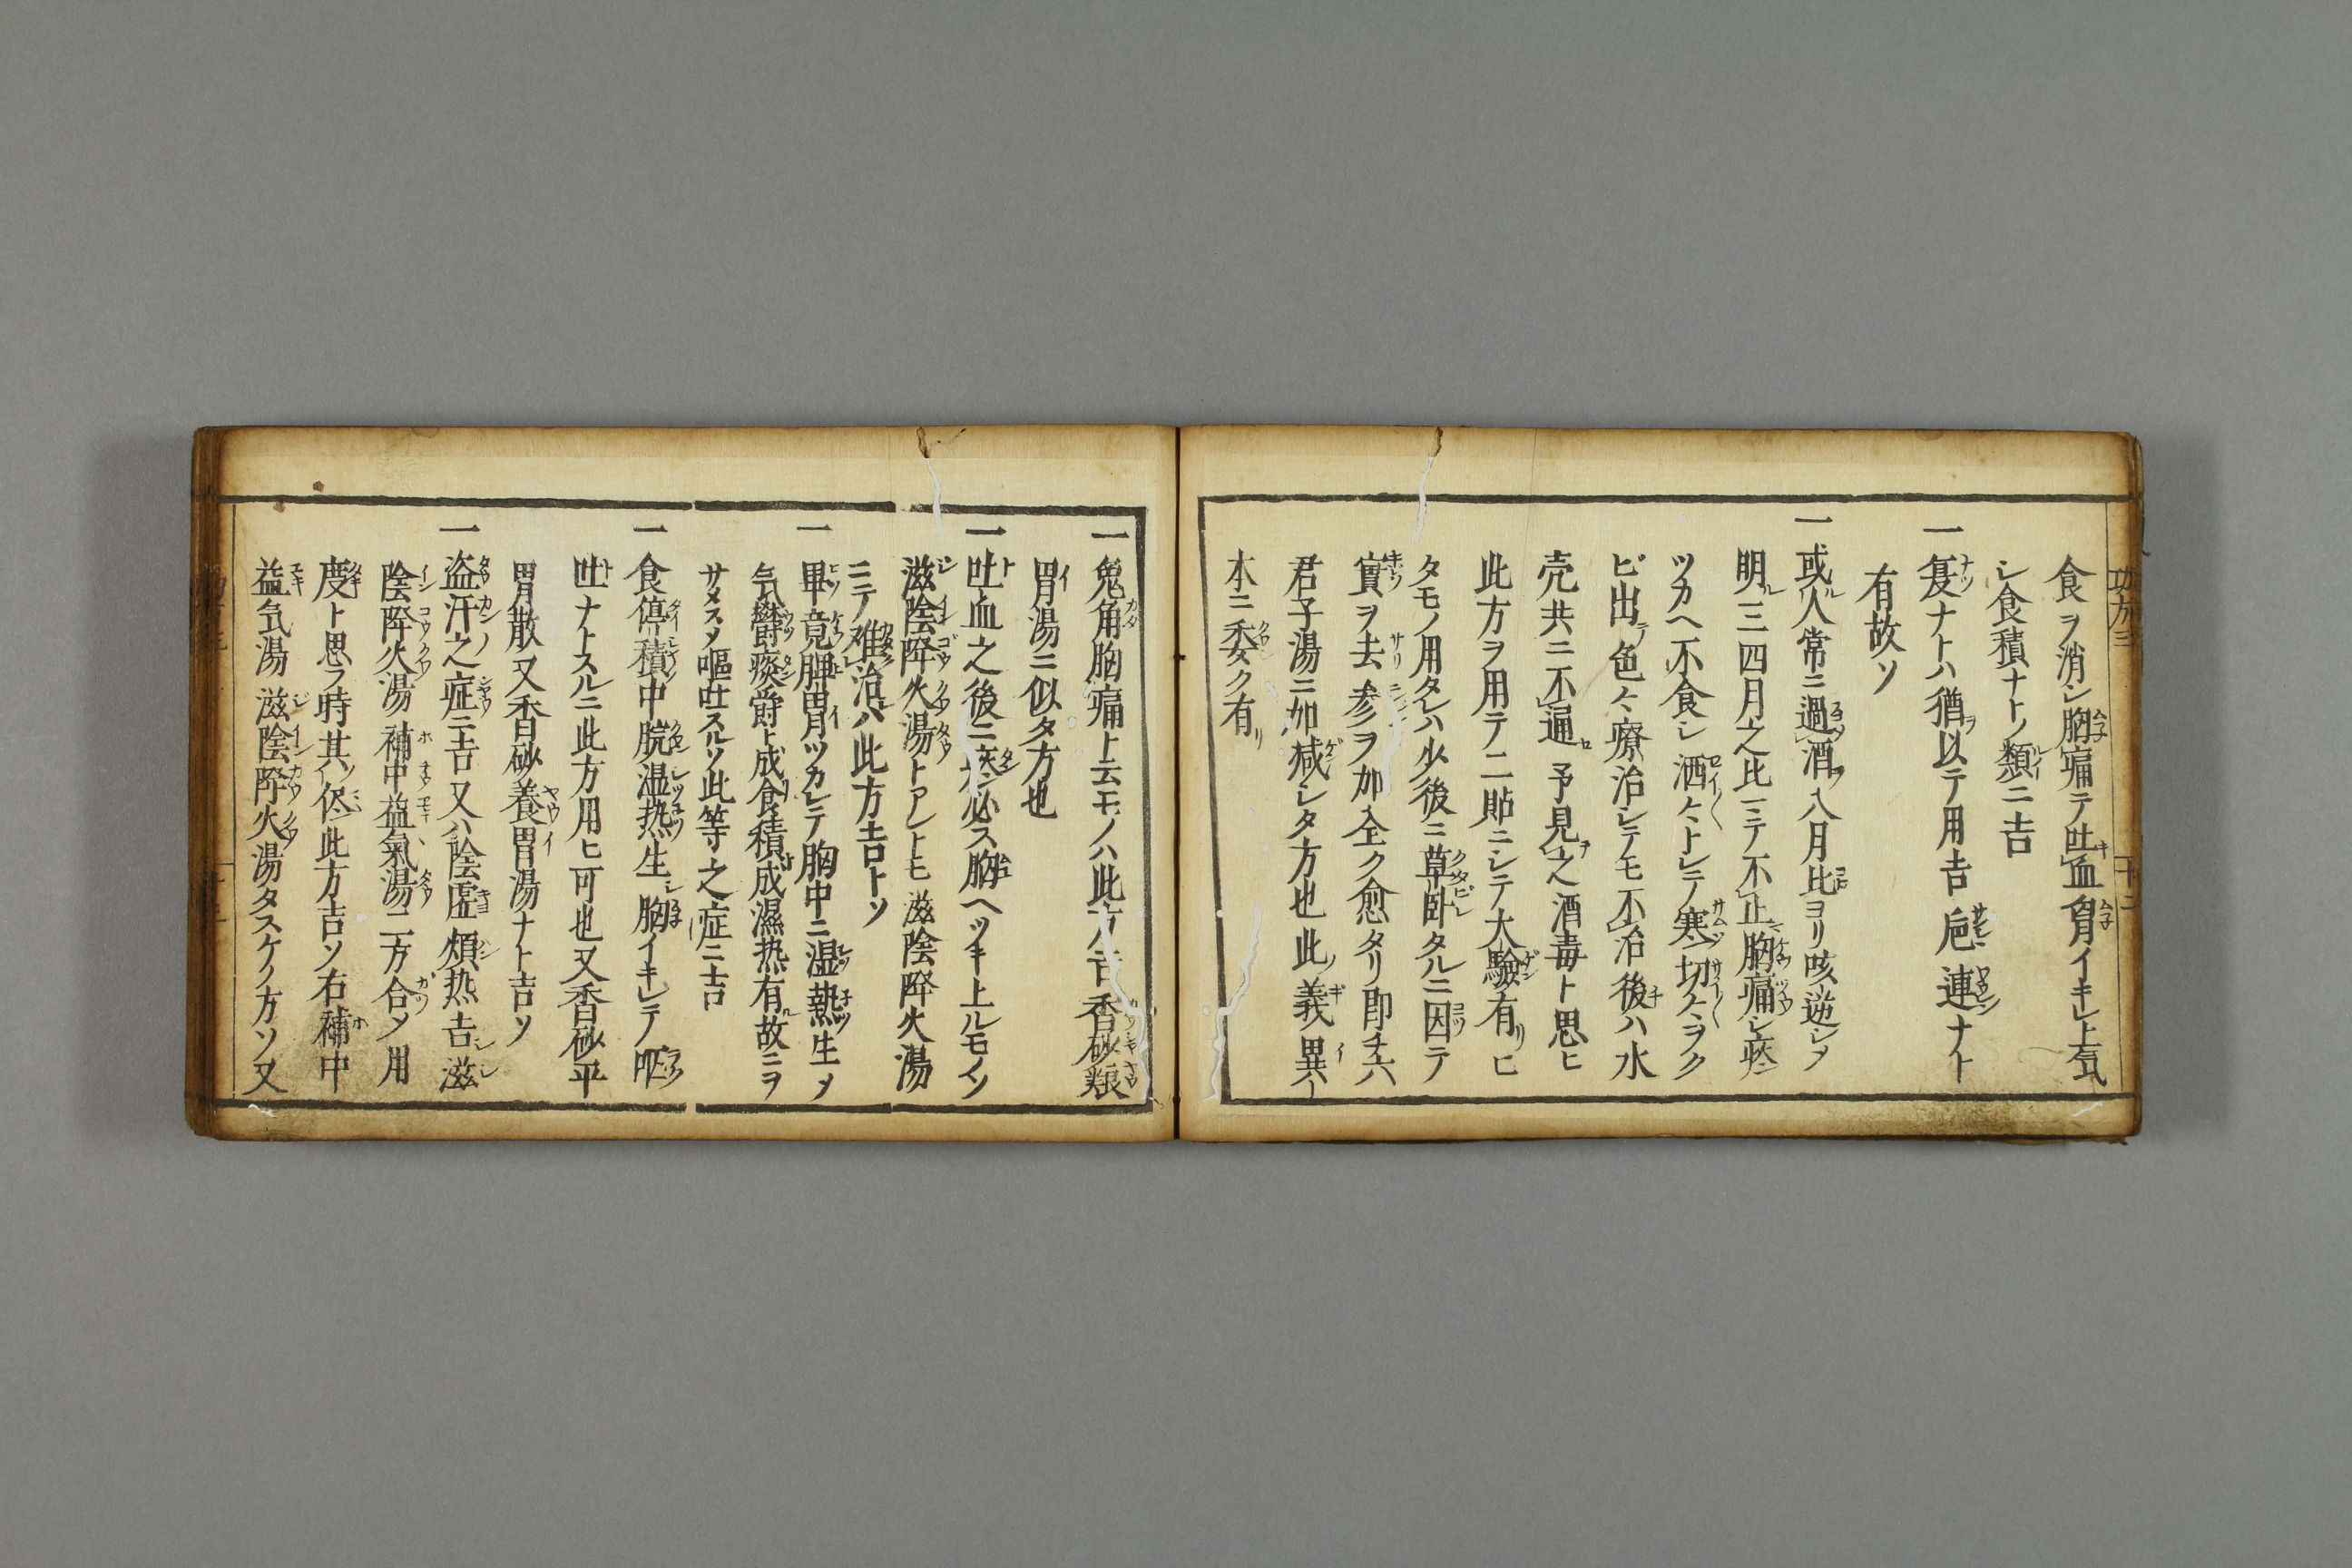 食ヲ消シ胸痛テ吐血胷イキレ上気
シ食積ナトノ類ニ吉
一夏ナトハ猶以テ用吉巵連ナト
有故ソ
一或人常ニ過酒ヲ八月比ヨリ咳逆シメ
明ル三四月之比ニテ不止胸痛シ痰
ツカヘ不食シ洒々トシテ寒切々ヲク
ビ出テ色々療治シテモ不治後ハ水
売共ニ不通予見之酒毒ト思ヒ
此方ヲ用テ二貼ニシテ大驗有リヒ
タモノ用タレハ少後ニ草臥タルニ因テ
實ヲ去参ヲ加全ク愈タリ即チ六
君子湯ニ加减シタ方也此ノ義異
本ニ委ク有リ
一鬼角胸痛ト云モノハ此方吉香砂粮
胃湯ニ似タ方也
一吐血之後ニ痰必ス胸ヘツキ上ルモノソ
滋陰降火湯トアレトモ滋陰降火湯
ニテ难治ハ此方吉トソ
一畢竟脾胃ツカレテ胸中ニ湿熱生メ
気欝痰欝ト成食積成濕热有ル故ニヲ
サメスメ嘔吐スルソ此等之症ニ吉
一食停積中脘湿热生シ胸イキレテ呕
吐ナトスルニ此方用ヒ可也又香砂平
胃散又香砂養胃湯ナト吉ソ
一盗汗之症ニ吉又ハ陰虚煩热吉滋
陰降火湯補中益氣湯二方合メ用
度ト思フ時其ノ侭此方吉ソ右補中
益気湯滋陰降火湯タスケノ方ソ又